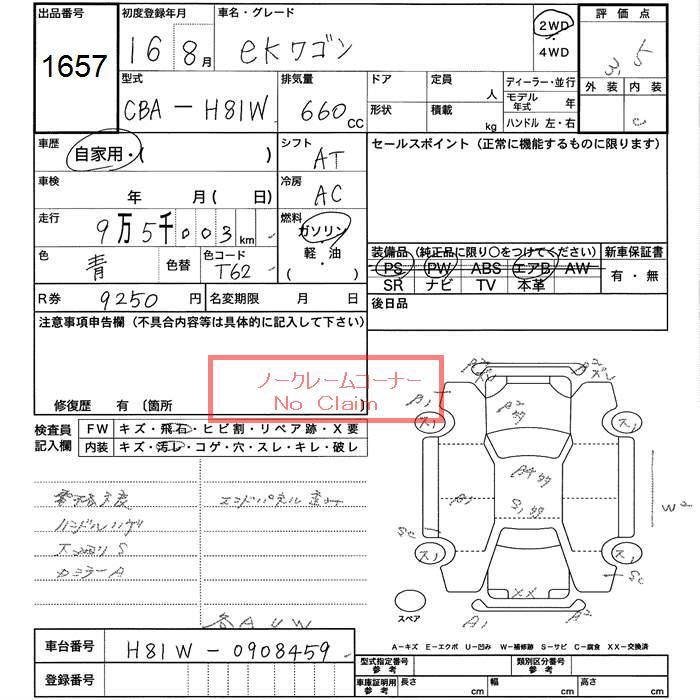 出品番号 初度登録年月 車名・グレード 評価点
1657 16 8月 eKワゴン 2WD・4WD 3.5
外装 内装
C
型式 排気量 ドア 定員 人 ディーラー・並行
CBA-H81W 660cc 形状 積載 kg モデル年式 年
ハンドル 左・右
車歴 自家用・( ) シフト AT セールスポイント (正常に機能するものに限ります)
車検 年 月( 日) 冷房 AC
走行 9万5千003km 燃料 ガソリン・軽・油・( )
色 青 色替 色コード T62
装備品 (純正品に限り〇をつけてください) 新車保証書
PS PW ABS エアB AW 有・無
SR ナビ TV 本革
R券 9250円 名変期限 月 日 後日品
注意事項申告欄 (不具合内容等は具体的に記入して下さい)
ノークレームコーナー
No Claim
修復歴 有 〔箇所 〕
検査員記入欄 FW キズ・飛石・ヒビ割・リペア跡・X要
内装 キズ・汚レ・コゲ・穴・スレ・キレ・破レ
ハンドルハゲ
エンドパネル
カミラーA
各AUW
スペア
XX
A-キズ E-エクボ U-凹み W-補修跡 S-サビ C-腐食 XX-交換済
車台番号 H81W-0908459
登録番号
型式指定番号 参考 類別区分番号 参考
車庫証明用 参考 長さ cm 幅 cm 高さ cm